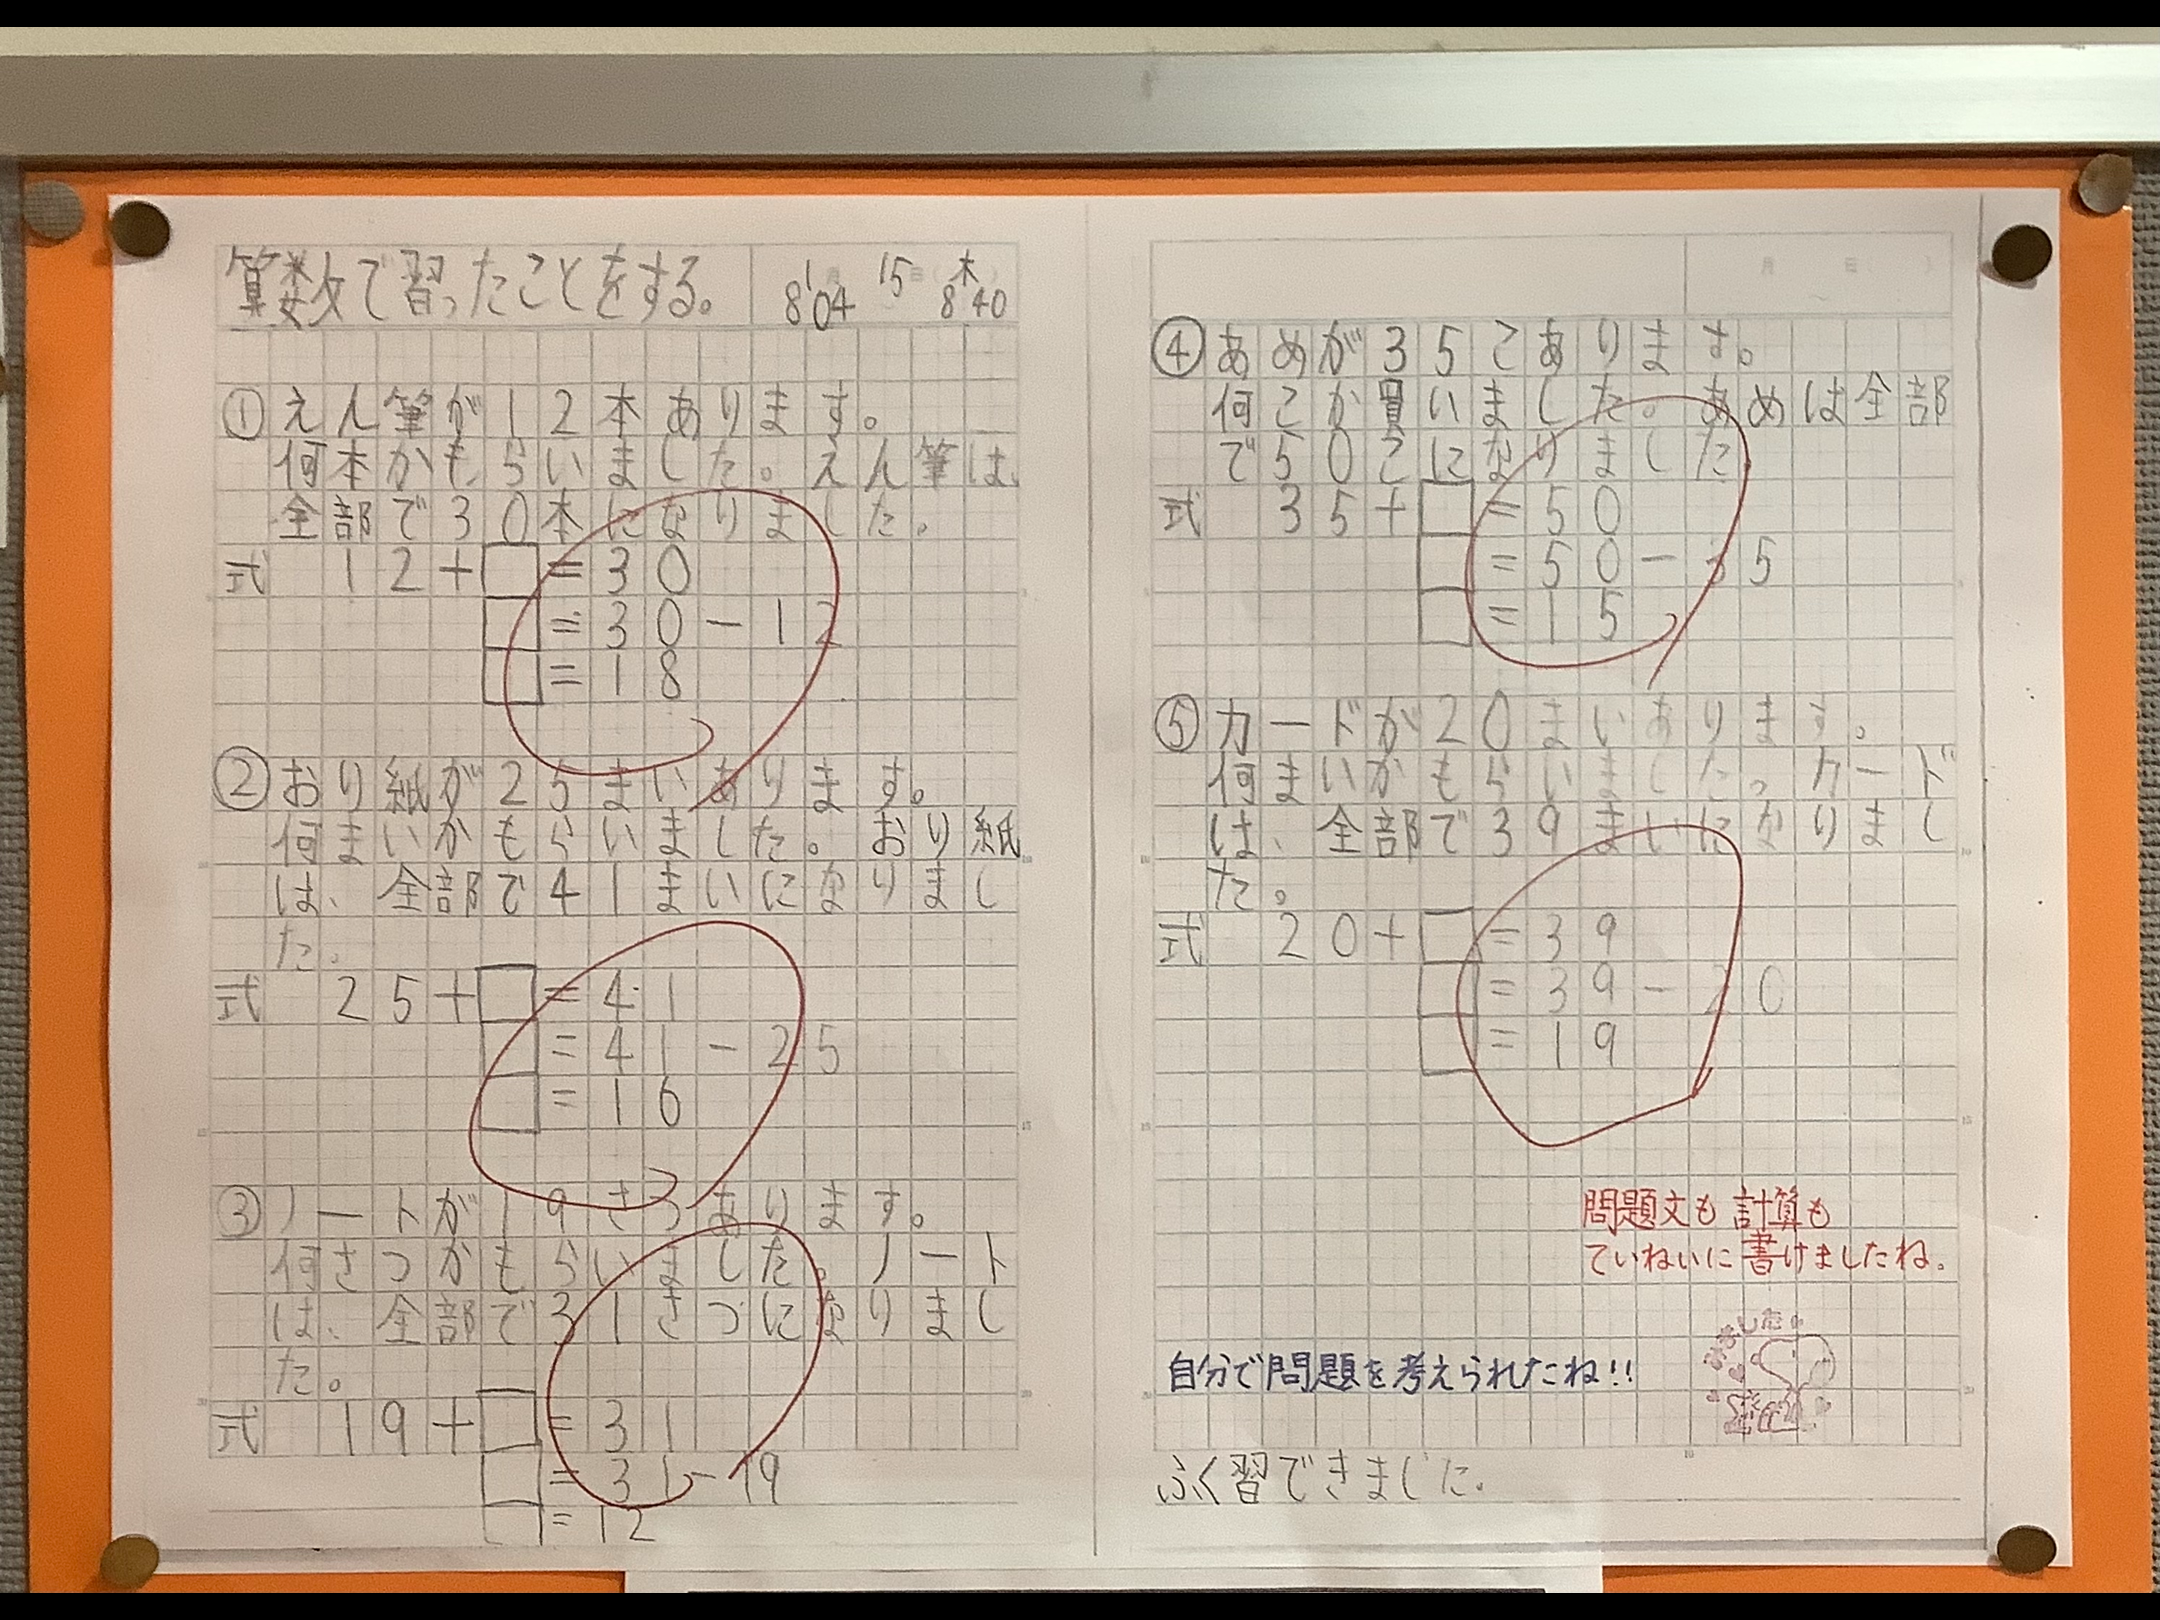 算数で習ったことをする。
1月15日(木)
8:04~8:40
①えん筆が12本あります。
何本かもらいました。えん筆は、
全部で30本になりました。
式 12+□=30
□=30-12
□=18
②おり紙が25まいあります。
何まいかもらいました。おり紙
は、全部で41まいになりまし
た。
式 25+□=41
□=41-25
□=16
③ノートが19さつあります。
何さつかもらいました。ノート
は、全部で31さつになりまし
た。
式 19+□=31
□=31-19
□=12
月 日( )
④あめが35こあります。
何こか買いました。あめは全部
で50こになりました
式 35+□=50
□=50-35
□=15
⑤カードが20まいあります。
何まいかもらいました。カード
は、全部で39まいになりまし
た。
式 20+□=39
□=39-20
□=19
問題文も計算も
ていねいに書けましたね。
自分で問題を考えられたね!!
ふく習できました。